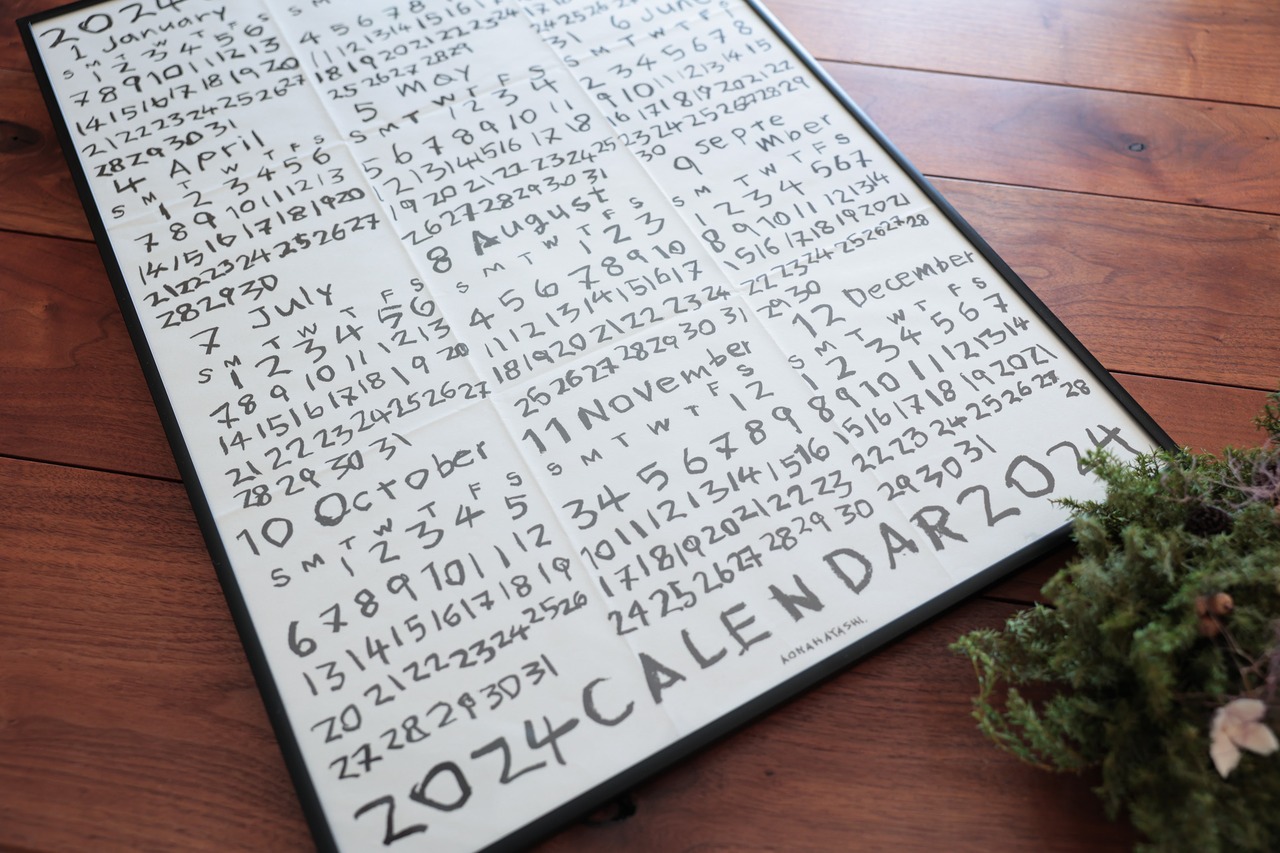 2024
1 January
S M T W T F S
1 2 3 4 5 6
7 8 9 10 11 12 13
14 15 16 17 18 19 20
21 22 23 24 25 26 27
28 29 30 31
S M
4 5 6 7 8
11 12 13 14 15 16 17
18 19 20 21 22 23 24
25 26 27 28 29
24 25 26
31
4 April
S M T W T F S
1 2 3 4 5 6
7 8 9 10 11 12 13
14 15 16 17 18 19 20
21 22 23 24 25 26 27
28 29 30
5 MAY
S M T W T F S
1 2 3 4
5 6 7 8 9 10 11
12 13 14 15 16 17 18
19 20 21 22 23 24 25
26 27 28 29 30 31
6 June
S M T W T F S
1
2 3 4 5 6 7 8
9 10 11 12 13 14 15
16 17 18 19 20 21 22
23 24 25 26 27 28 29
30
7 July
S M T W T F S
1 2 3 4 5 6
7 8 9 10 11 12 13
14 15 16 17 18 19 20
21 22 23 24 25 26 27
28 29 30 31
8 August
S M T W T F S
1 2 3
4 5 6 7 8 9 10
11 12 13 14 15 16 17
18 19 20 21 22 23 24
25 26 27 28 29 30 31
9 septe
mber
S M T W T F S
1 2 3 4 5 6 7
8 9 10 11 12 13 14
15 16 17 18 19 20 21
22 23 24 25 26 27 28
29 30
10 October
S M T W T F S
1 2 3 4 5
6 7 8 9 10 11 12
13 14 15 16 17 18 19
20 21 22 23 24 25 26
27 28 29 30 31
11 November
S M T W T F S
1 2
3 4 5 6 7 8 9
10 11 12 13 14 15 16
17 18 19 20 21 22 23
24 25 26 27 28 29 30
12 December
S M T W T F S
1 2 3 4 5 6 7
8 9 10 11 12 13 14
15 16 17 18 19 20 21
22 23 24 25 26 27 28
29 30 31
2024 CALENDAR 2024